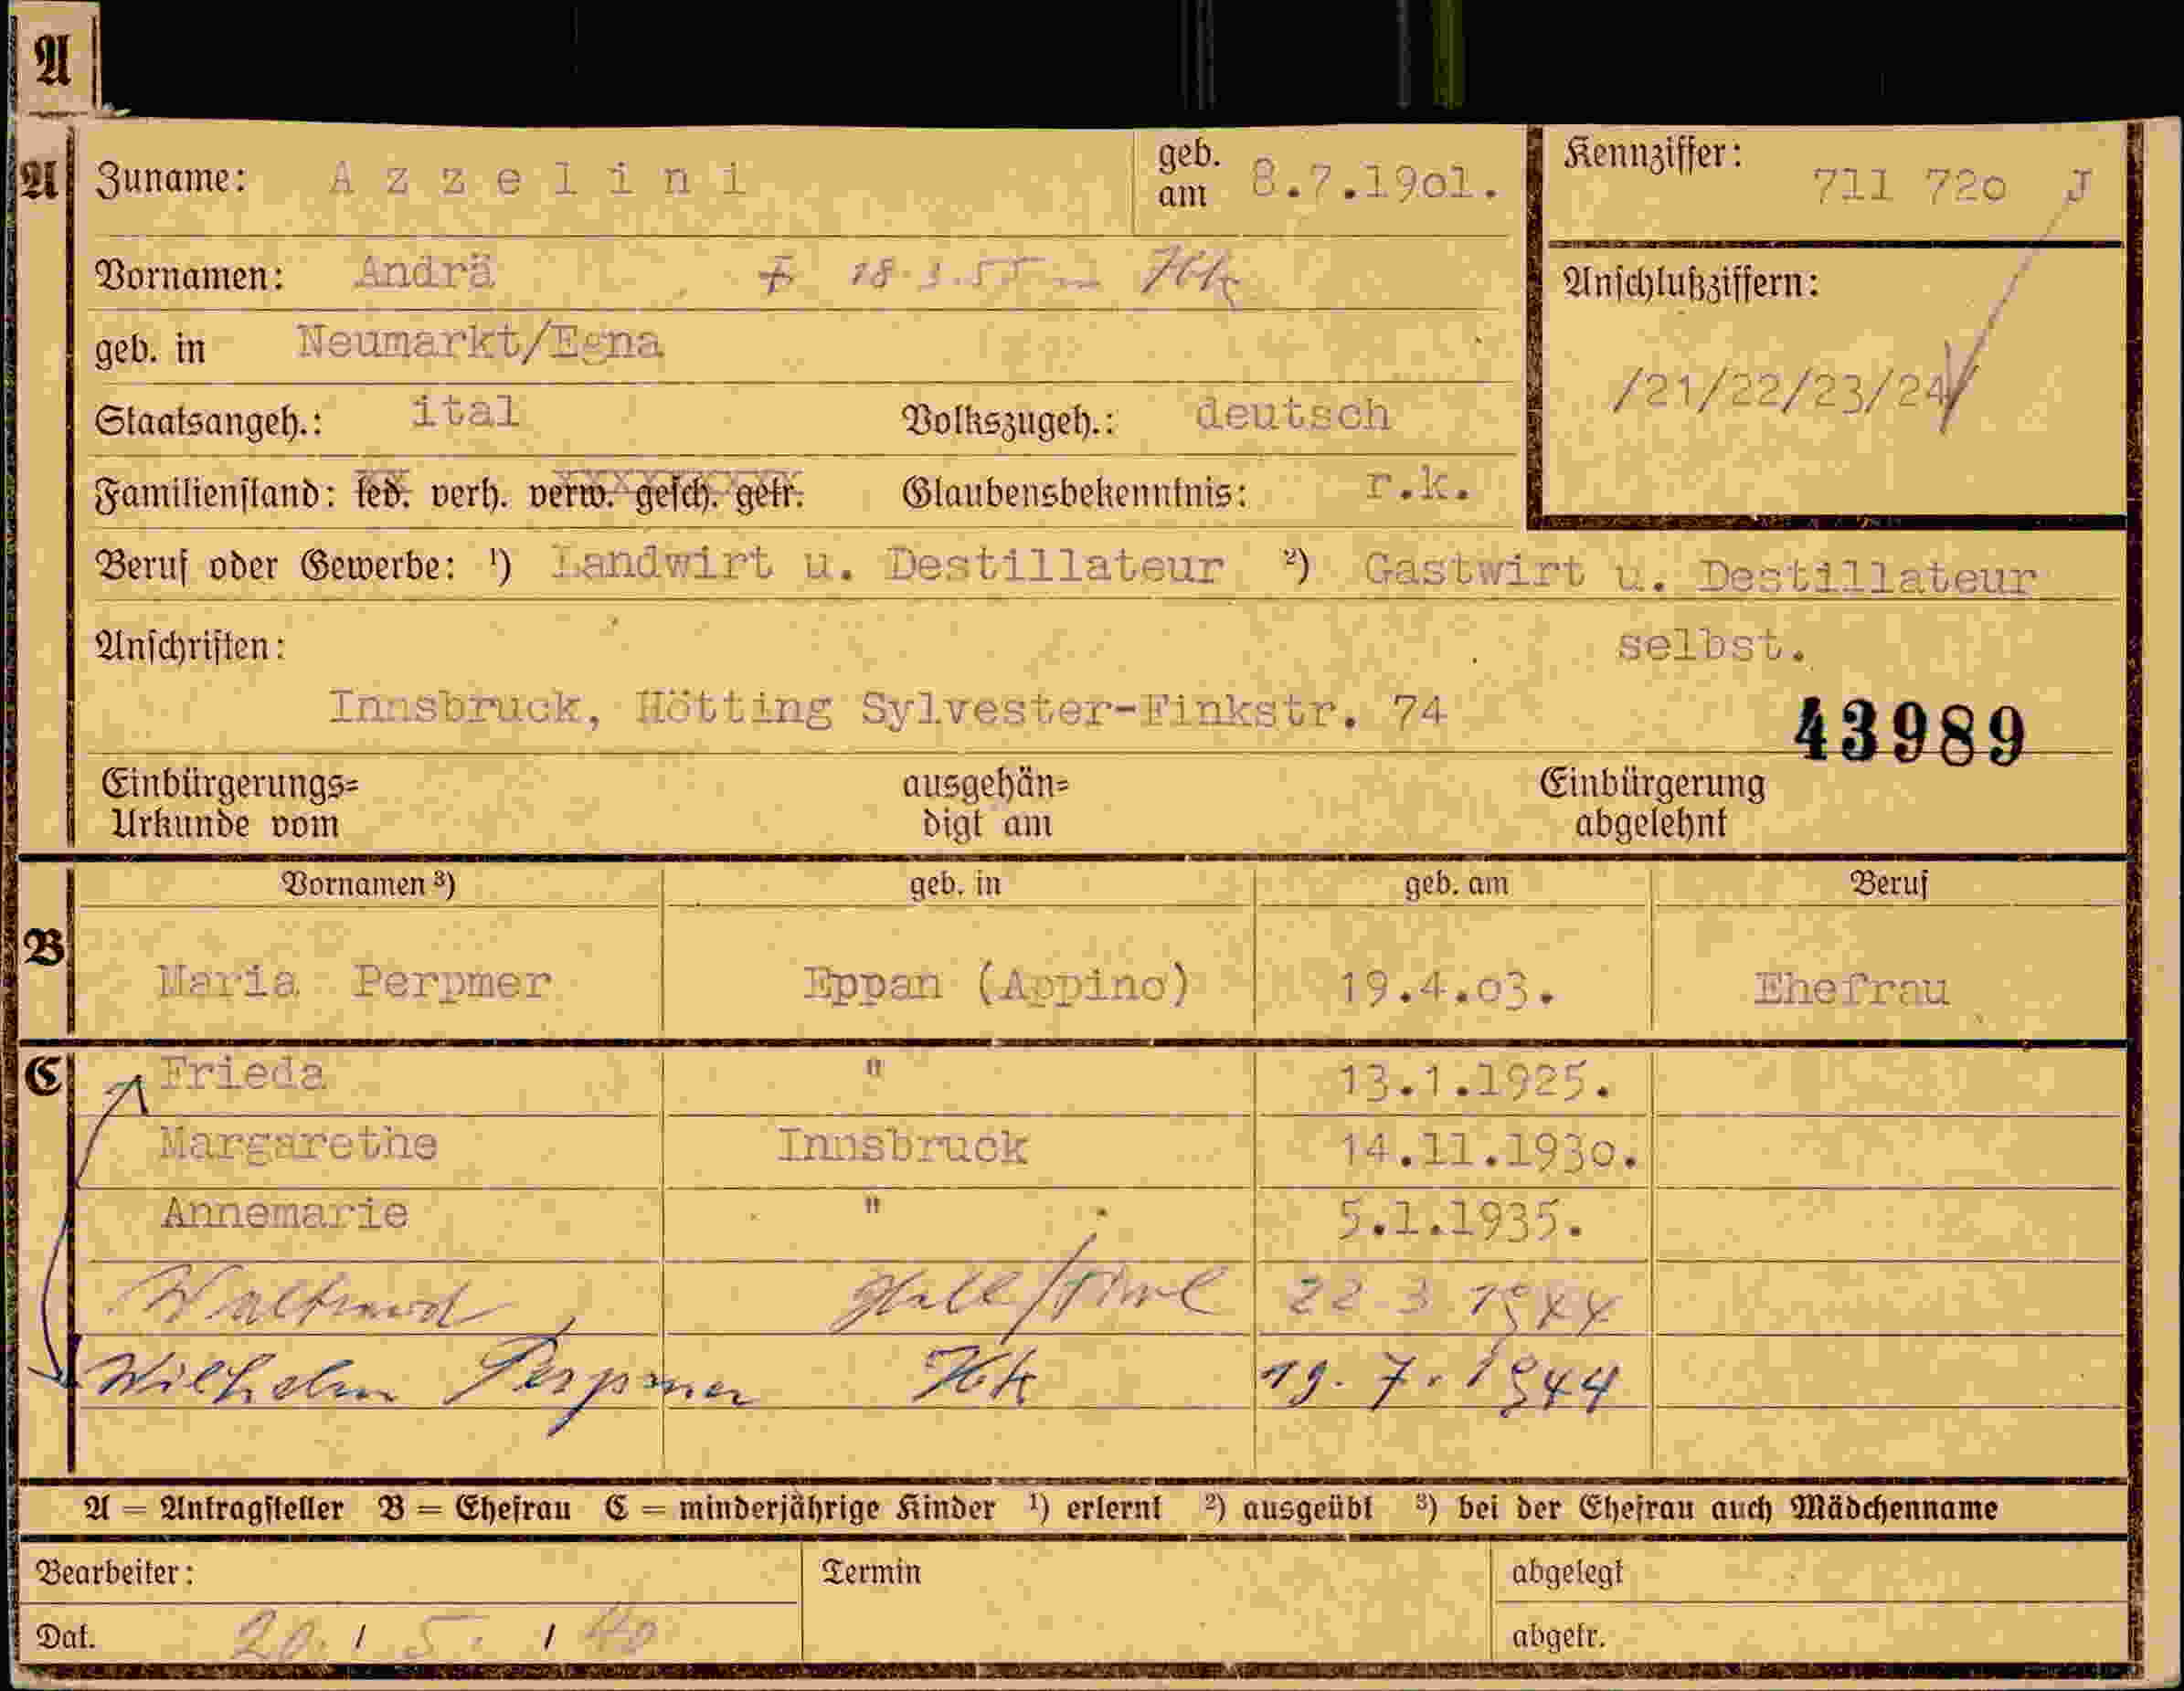 A
A Zuname: Azzelini geb. am 8.7.1901. Kennziffer: 711 720 J
Vornamen: Andrä 18.3.55 Ibk Anschlußziffern:
geb. in Neumarkt/Egna
/21/22/23/24/
Staatsangeh.: ital Volkszugeh.: deutsch
Familienstand: led. verh. verw. gesch. getr. Glaubensbekenntnis: r.k.
Beruf oder Gewerbe: ¹) Landwirt u. Destillateur ²) Gastwirt u. Destillateur
Anschriften: selbst.
Innsbruck, Hötting Sylvester-Finkstr. 74 43989
Einbürgerungs= ausgehän= Einbürgerung
Urkunde vom digt am abgelehnt
Vornamen ³) geb. in geb. am Beruf
B Maria Perpmer Eppan (Appino) 19.4.03. Ehefrau
C Frieda " 13.1.1925.
Margarethe Innsbruck 14.11.1930.
Annemarie " 5.1.1935.
Waltraud Hall/Tirol 22 3 1944
Wilhelm Perpmer Ibk 19.7.1944
A = Antragsteller B = Ehefrau C = minderjährige Kinder ¹) erlernt ²) ausgeübt ³) bei der Ehefrau auch Mädchenname
Bearbeiter: Termin abgelegt
Dat. 20. / 5. / 40 abgetr.